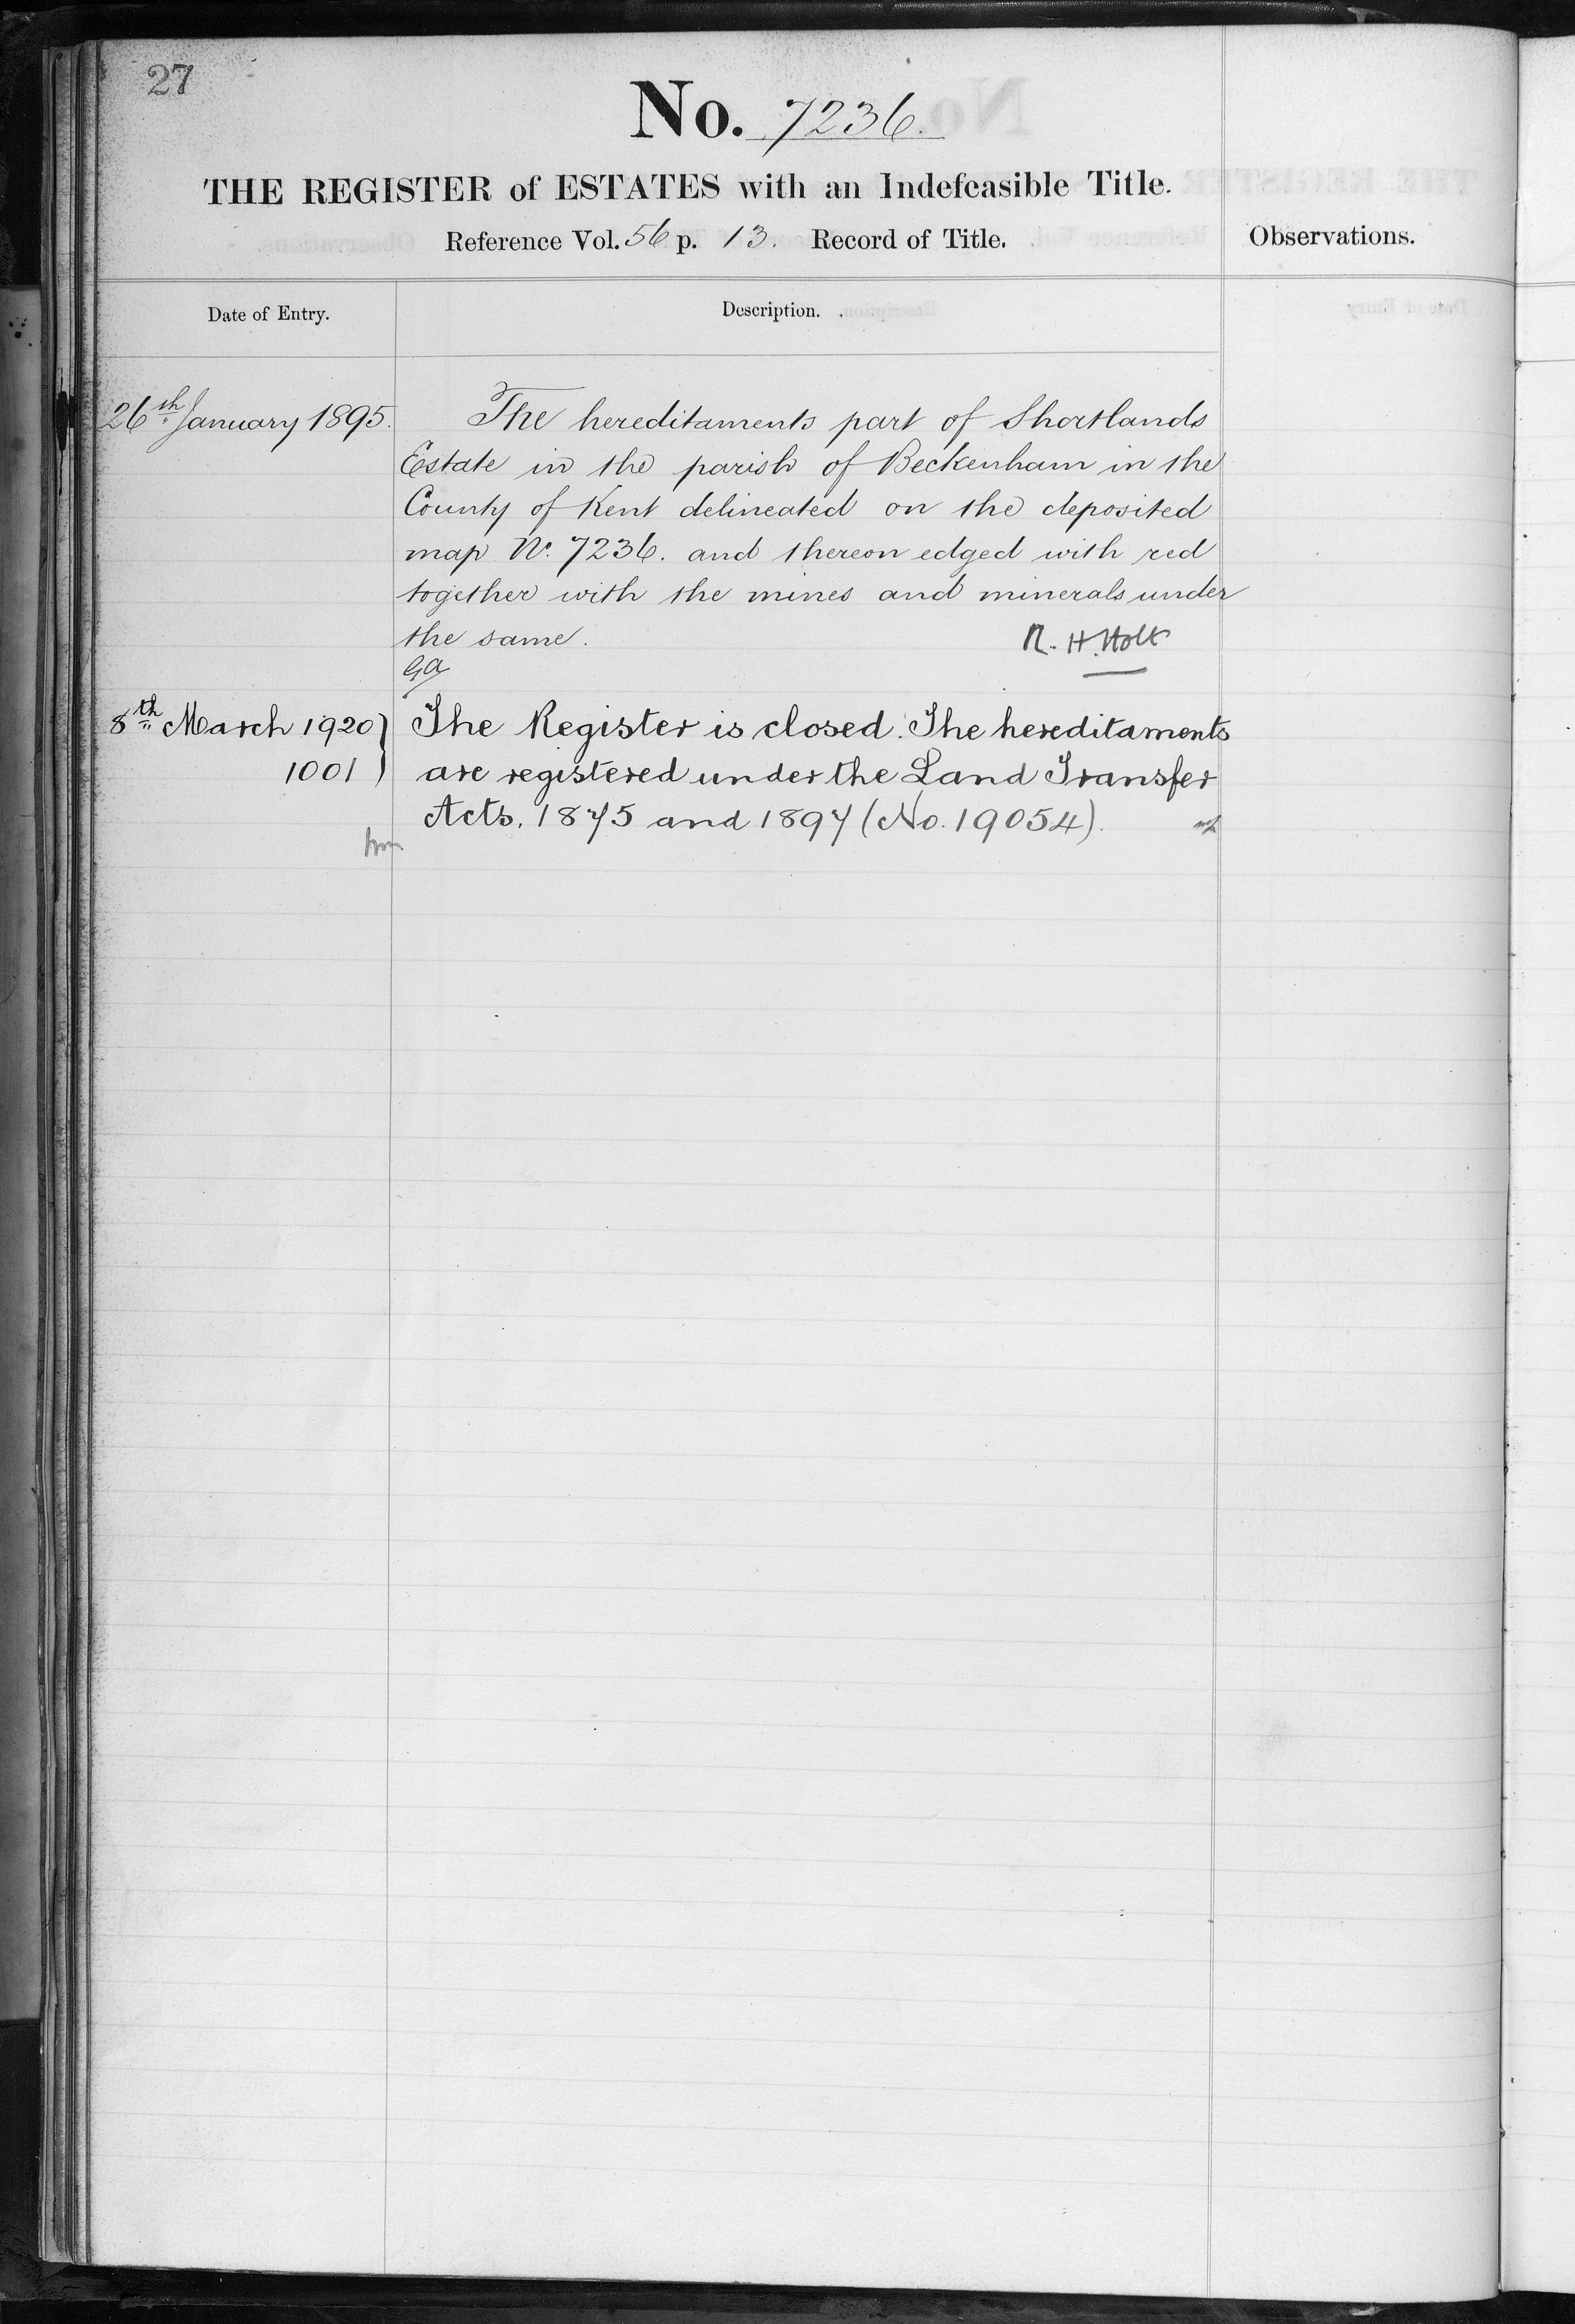 27
No. 7236.
THE REGISTER of ESTATES with an Indefeasible Title.
Reference Vol. 56 p. 13. Record of Title.
Observations.
Date of Entry.
Description.
26th January 1895.
The hereditaments part of Shortlands
Estate in the parish of Beckenham in the
County of Kent delineated on the deposited
map No. 7236. and thereon edged with red
together with the mines and minerals under
the same.
R. H. Holt
GA
8th March 1920
1001
The Register is closed. The hereditaments
are registered under the Land Transfer
Acts, 1875 and 1897 (No. 19054).